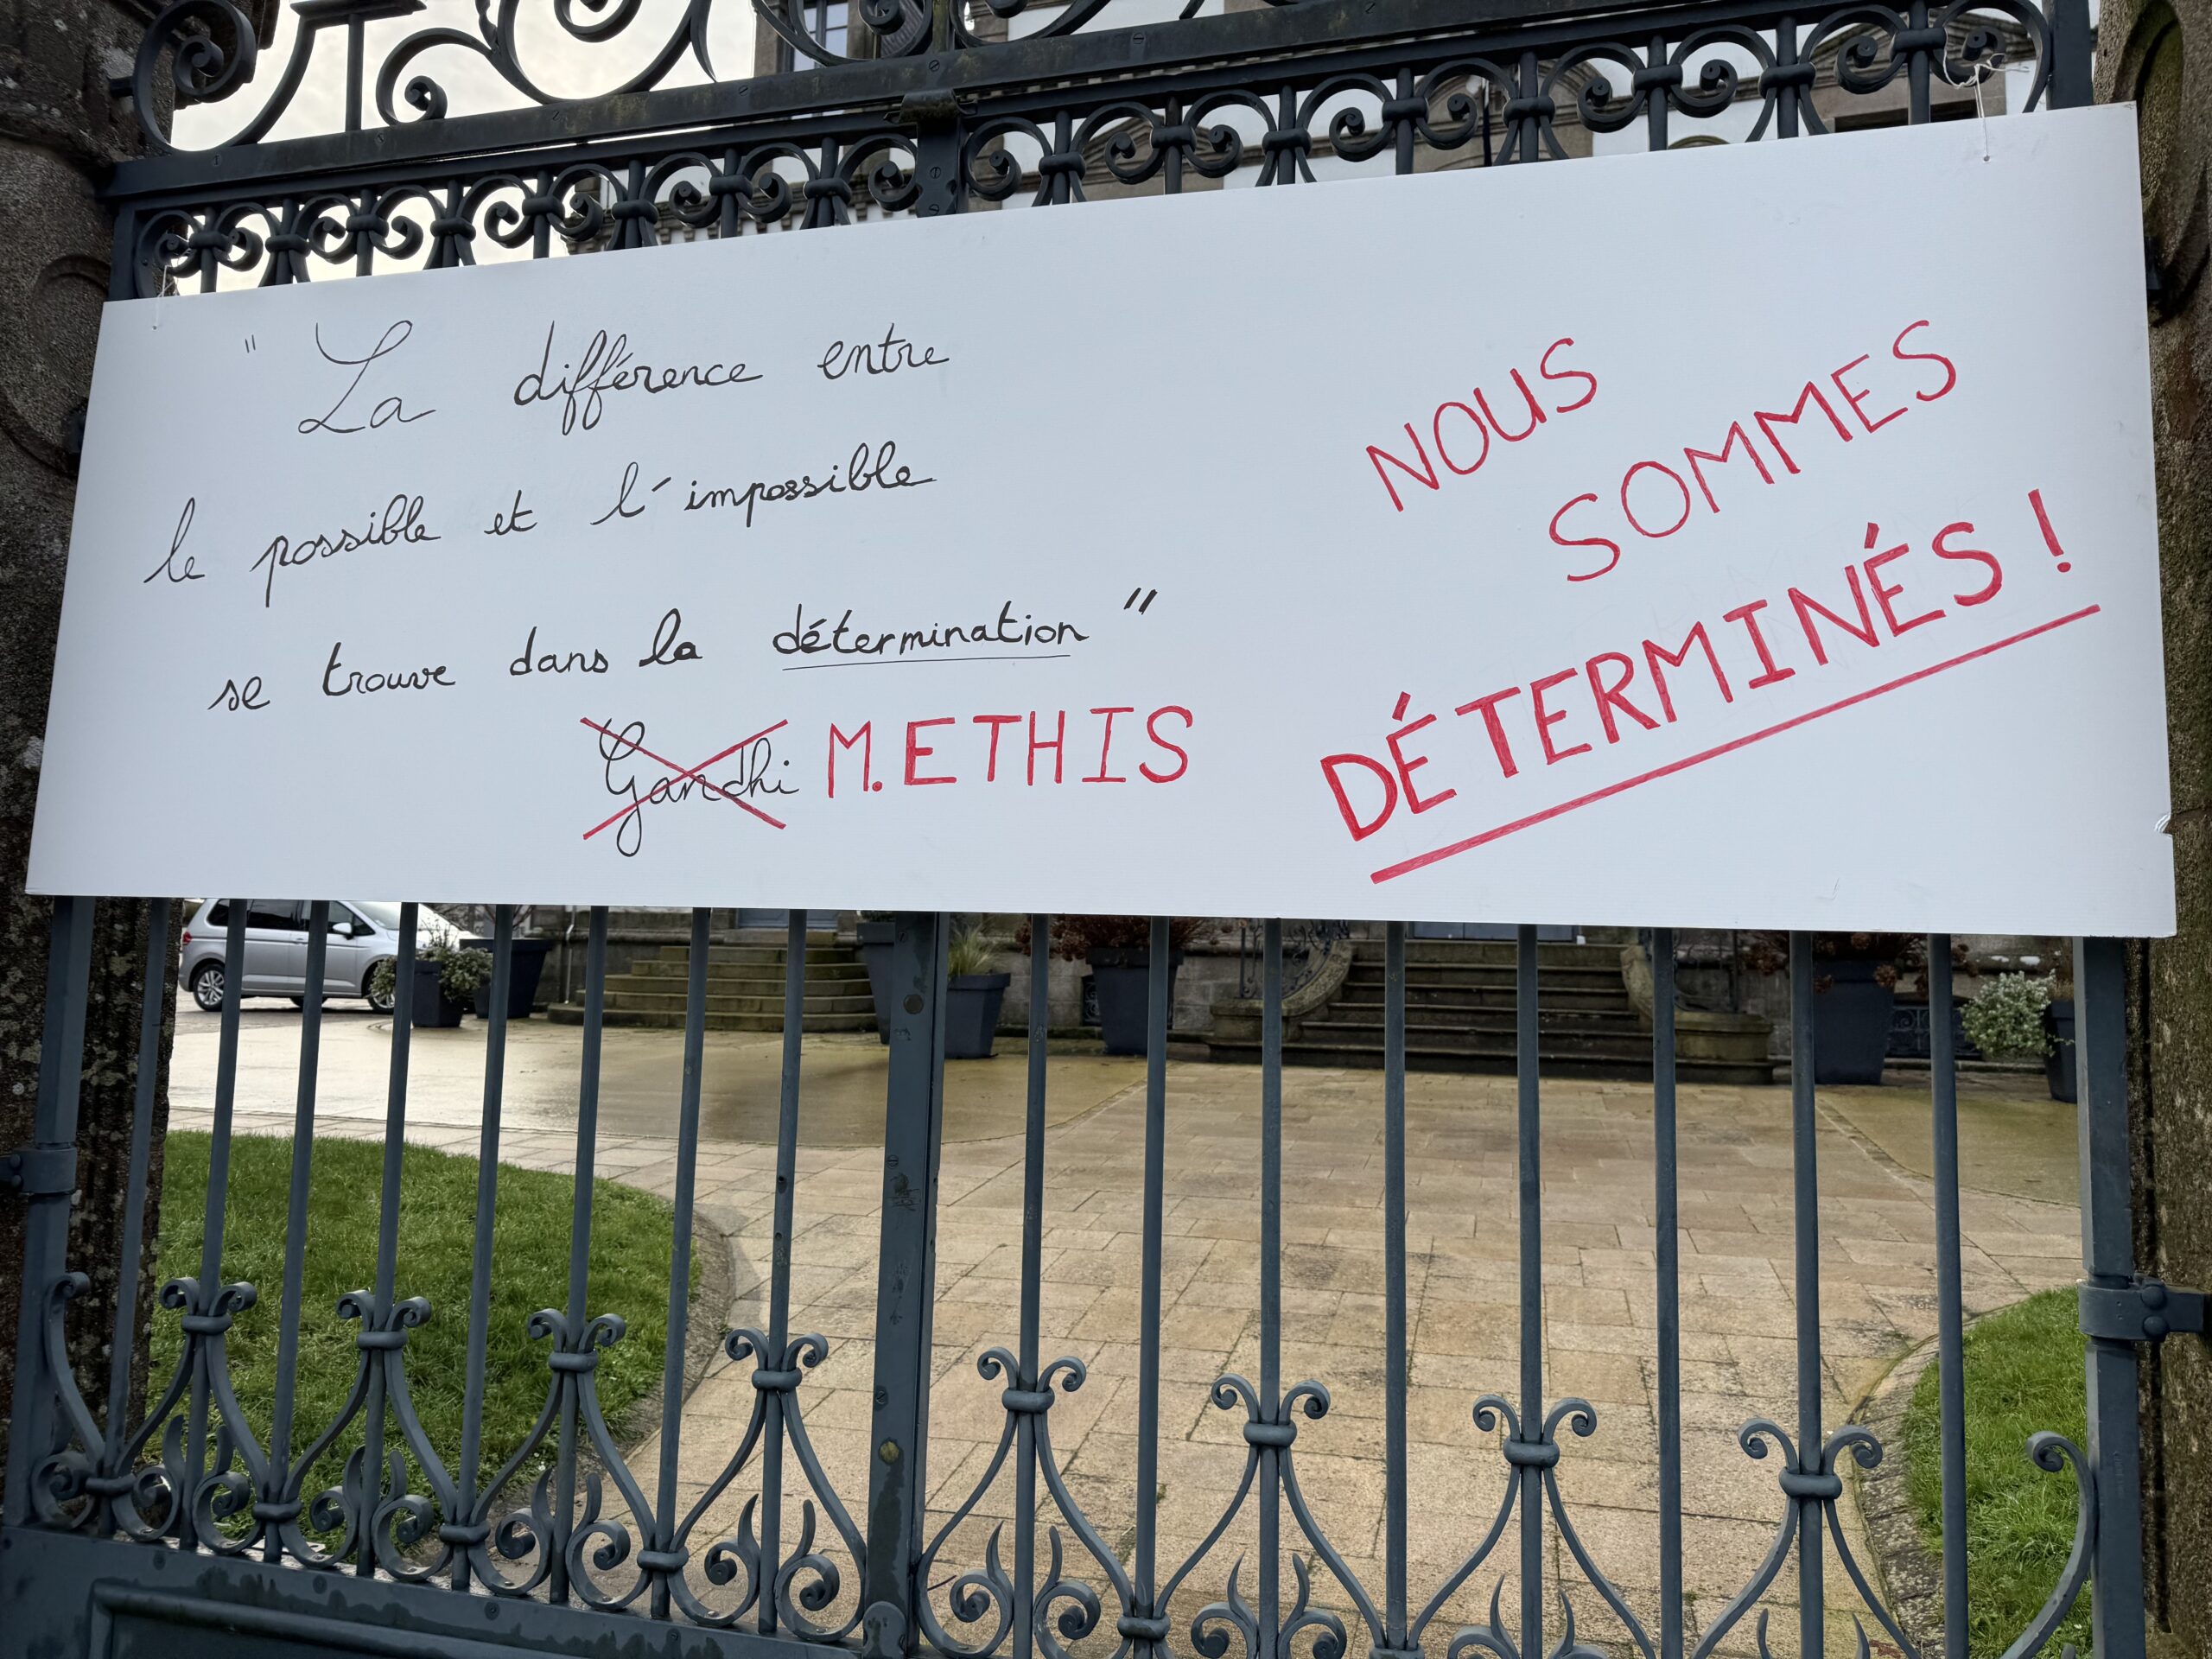 " La différence entre
le possible et l'impossible
se trouve dans la détermination "
Gandhi M. ETHIS
NOUS
SOMMES
DÉTERMINÉS !